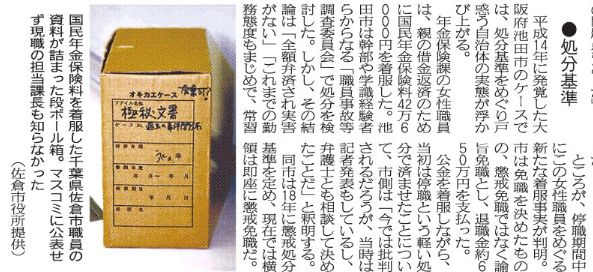 ●処分基準
平成14年に発覚した大
阪府池田市のケースで
は、処分基準をめぐり戸
惑う自治体の実態が浮か
び上がる。
年金保険課の女性職員
は、親の借金返済のため
に国民年金保険料42万6
000円を着服した。池
田市は幹部や学識経験者
らからなる「職員事故等
調査委員会」で処分を検
討した。しかし、その結
論は「全額弁済され実害
がない」「これまでの勤
務態度もまじめで、常習
ところが、停職期間中
にこの女性職員をめぐる
新たな着服事実が判明。
市は免職を決めたもの
の、懲戒免職ではなく諭
旨免職とし、退職金約6
50万円を支払った。
公金を着服しながら、
当初は停職という軽い処
分で済ませたことについ
て、市側は「今では批判
されるだろうが、当時は
記者発表もしているし、
弁護士とも相談して決め
たことだ」と釈明する。
同市は18年に懲戒処分
基準を定め、現在では横
領は即座に懲戒免職だ。
オキカエケース
ファイル名称
極秘文書
国民年金保険料を着服した千葉県佐倉市職員の
資料が詰まった段ボール箱。マスコミに公表せ
ず現職の担当課長も知らなかった
（佐倉市役所提供）